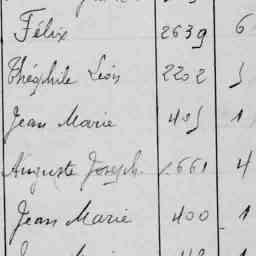 Félix 2639 6
Théophile Léon 2202 5
Jean Marie 405 1
Auguste Joseph 1661 4
Jean Marie 400 1